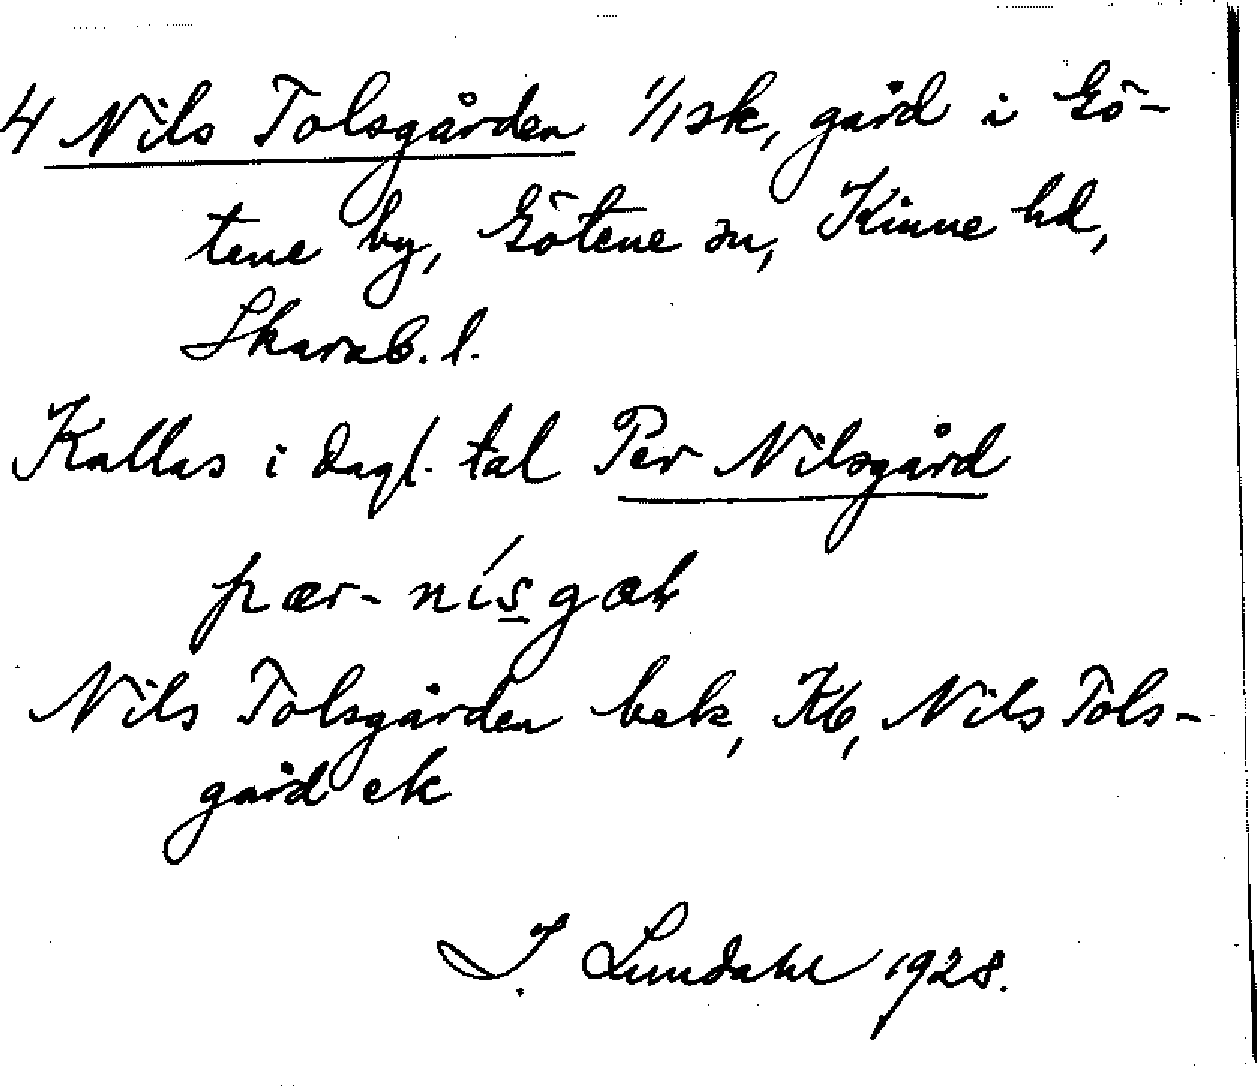 4 Nils Tolsgården 1/1 sk, gård i Gö-
tene by, Götene sn, Kinne hd,
Skarab. l.
Kallas i dagl. tal Per Nilsgård
pær-nísgæɽ
Nils Tolsgården bek, Kb, Nils Tols-
gård ek
I. Lundahl 1928.